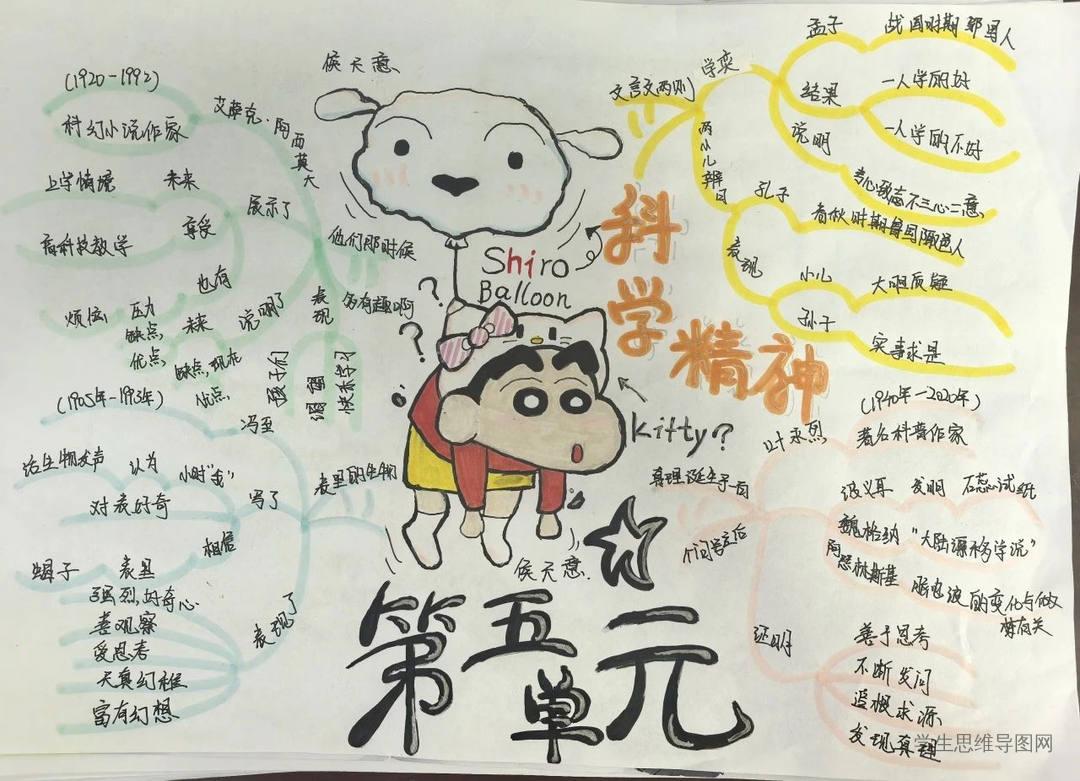 侯天意
(1920-1992)
艾萨克·阿西莫夫
科幻小说作家
上学情境
未来
展示了
看科技教学
享受
他们那时候
多有趣啊
也有
烦恼
压力
缺点,
优点,
未来
说明了
缺点,现在
优点,
表现
孩子们
渴望
快乐学习
Shiro
Balloon
?
?
Kitty?
科学精神
文言文两则
学弈
孟子
战国时期邹国人
结果
一人学的好
一人学的不好
说明
专心致志不三心二意
两小儿辩日
孔子
春秋时期鲁国陬邑人
表现
小儿
大胆质疑
孙子
实事求是
(1905年-1993年)
冯至
表里的生物
话生物发声
认为
小时"我"
写了
对表好奇
相信
蝎子
表里
表现了
强烈,好奇心
善观察
爱思考
天真幻雅
富有幻想
(1940年-2020年)
叶永烈
著名科普作家
真理诞生于一百
个问号之后
波义耳
发明
石蕊试纸
魏格纳
"大陆漂移学说"
阿瑟林斯基
眼电波的变化与做
梦有关
证明
善于思考
不断发问
追根求源
发现真理
侯天意.
第五单元
学生思维导图网